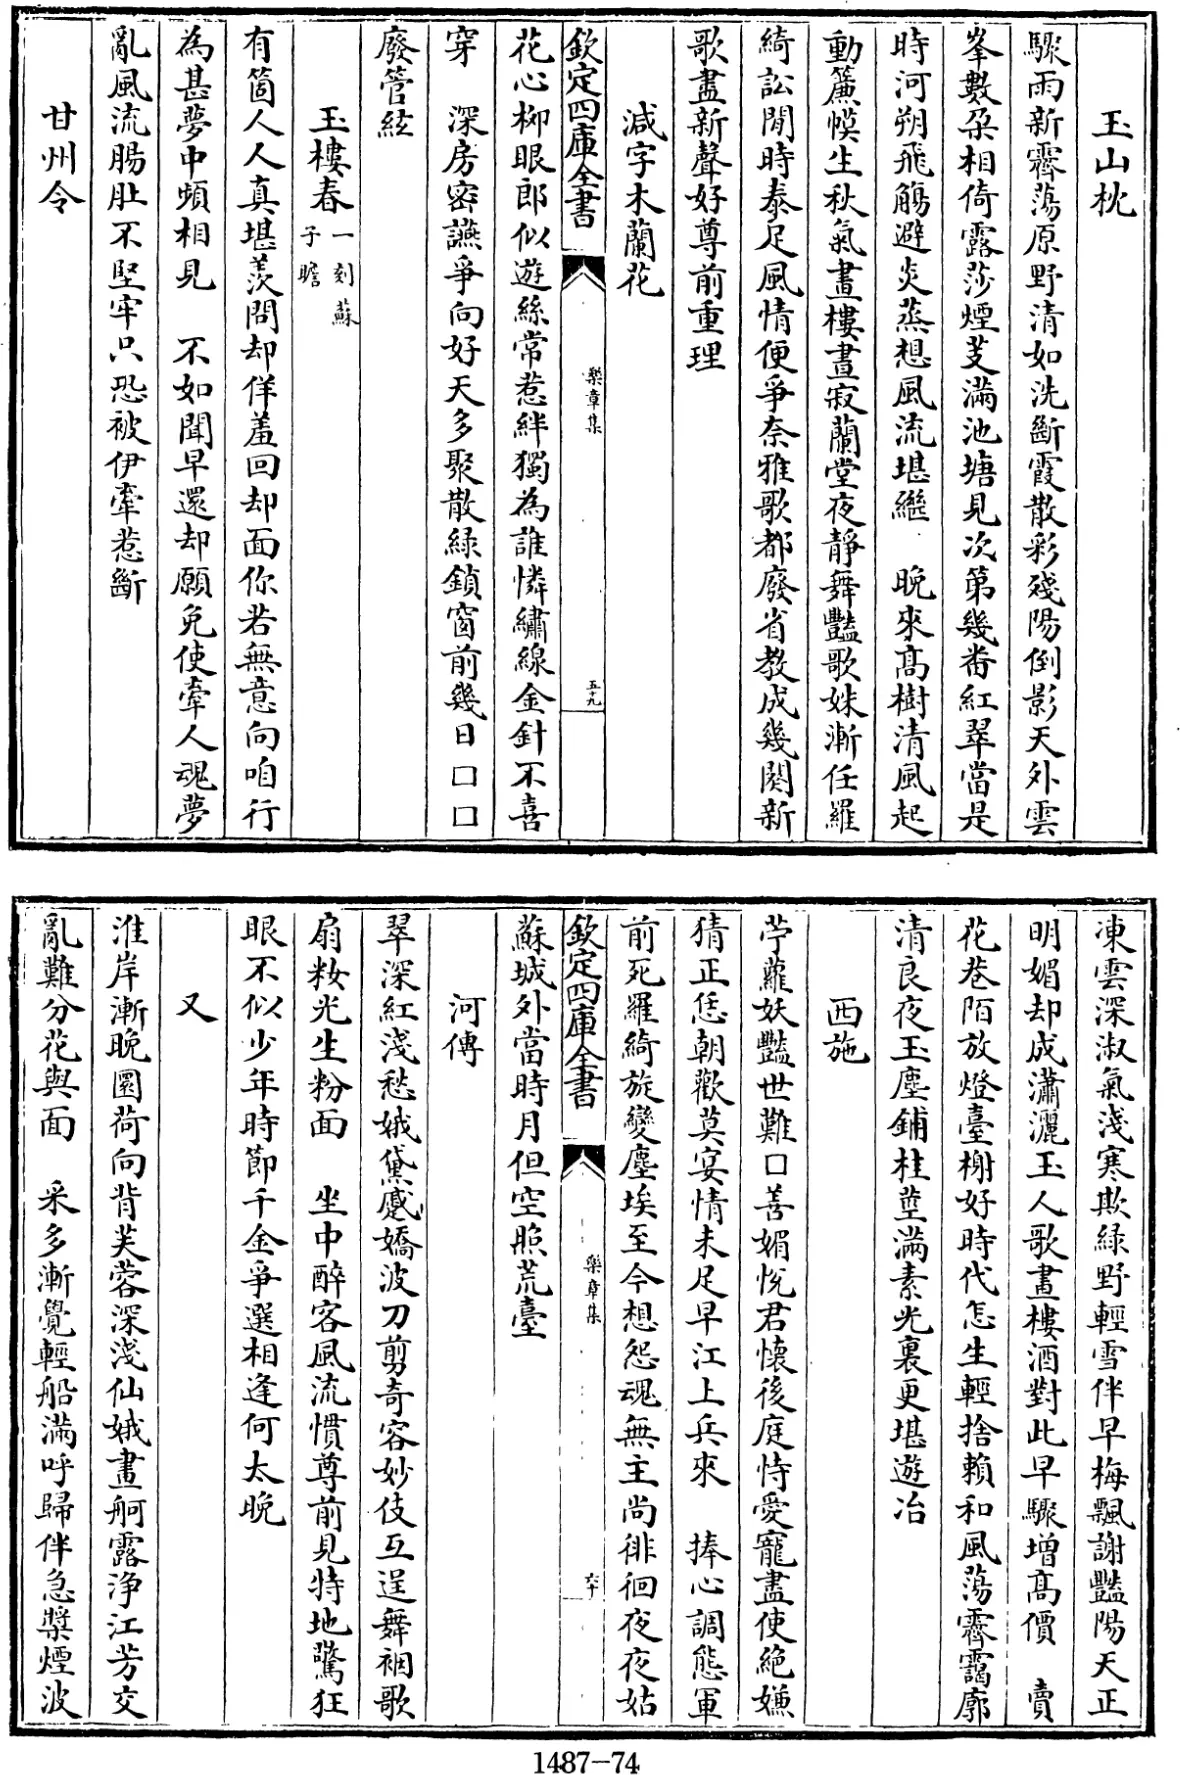 玉山枕
驟雨新霽蕩原野清如洗斷霞散彩殘陽倒影天外雲
峯數朶相倚露莎煙芰滿池塘見次第幾番紅翠當是
時河朔飛觴避炎蒸想風流堪繼　晚來髙樹清風起
動簾幙生秋氣畫樓晝寂蘭堂夜靜舞豔歌姝漸任羅
綺訟閒時泰足風情便爭奈雅歌都廢省教成幾闋新
歌盡新聲好尊前重理
減字木蘭花
欽定四庫全書
樂章集
五十九
花心柳眼郎似遊絲常惹絆獨為誰憐繡線金針不喜
穿　深房密讌爭向好天多聚散緑鎖窗前幾日口口
廢管絃
玉樓春一刻蘇子瞻
有箇人人真堪羡問却佯羞回却面你若無意向咱行
為甚夢中頻相見　不如聞早還却願免使牽人魂夢
亂風流腸肚不堅牢只恐被伊牽惹斷
甘州令
凍雲深淑氣淺寒欺緑野輕雪伴早梅飄謝豔陽天正
明媚却成瀟灑玉人歌畫樓酒對此早驟增髙價　賣
花巷陌放燈臺榭好時代怎生輕捨賴和風蕩霽靄廓
清良夜玉塵鋪桂華滿素光裏更堪遊冶
西施
苧蘿妖豔世難口善媚悅君懷後庭恃愛寵盡使絶嫌
猜正恁朝歡莫宴情未足早江上兵來　捧心調態軍
前死羅綺旋變塵埃至今想怨魂無主尚徘徊夜夜姑
欽定四庫全書
樂章集
六十
蘇城外當時月但空照荒臺
河傳
翠深紅淺愁娥黛蹙嬌波刀剪奇容妙伎互逞舞裀歌
扇粧光生粉面　坐中醉客風流慣尊前見特地驚狂
眼不似少年時節千金爭選相逢何太晚
又
淮岸漸晚圜荷向背芙蓉深淺仙娥畫舸露淨江芳交
亂難分花與面　采多漸覺輕船滿呼歸伴急槳煙波
1487-74